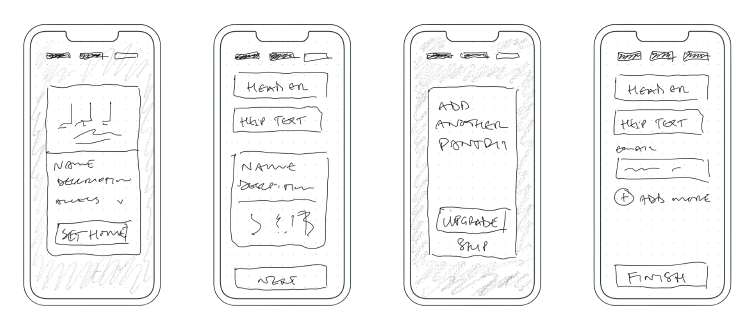 NAME
DESCRIPTION
ACCESS
SET HOME
HEADER
HELP TEXT
NAME
DESCRIPTION
NEXT
ADD
ANOTHER
PANTRY
UPGRADE
SKIP
HEADER
HELP TEXT
EMAIL
+ ADD MORE
FINISH